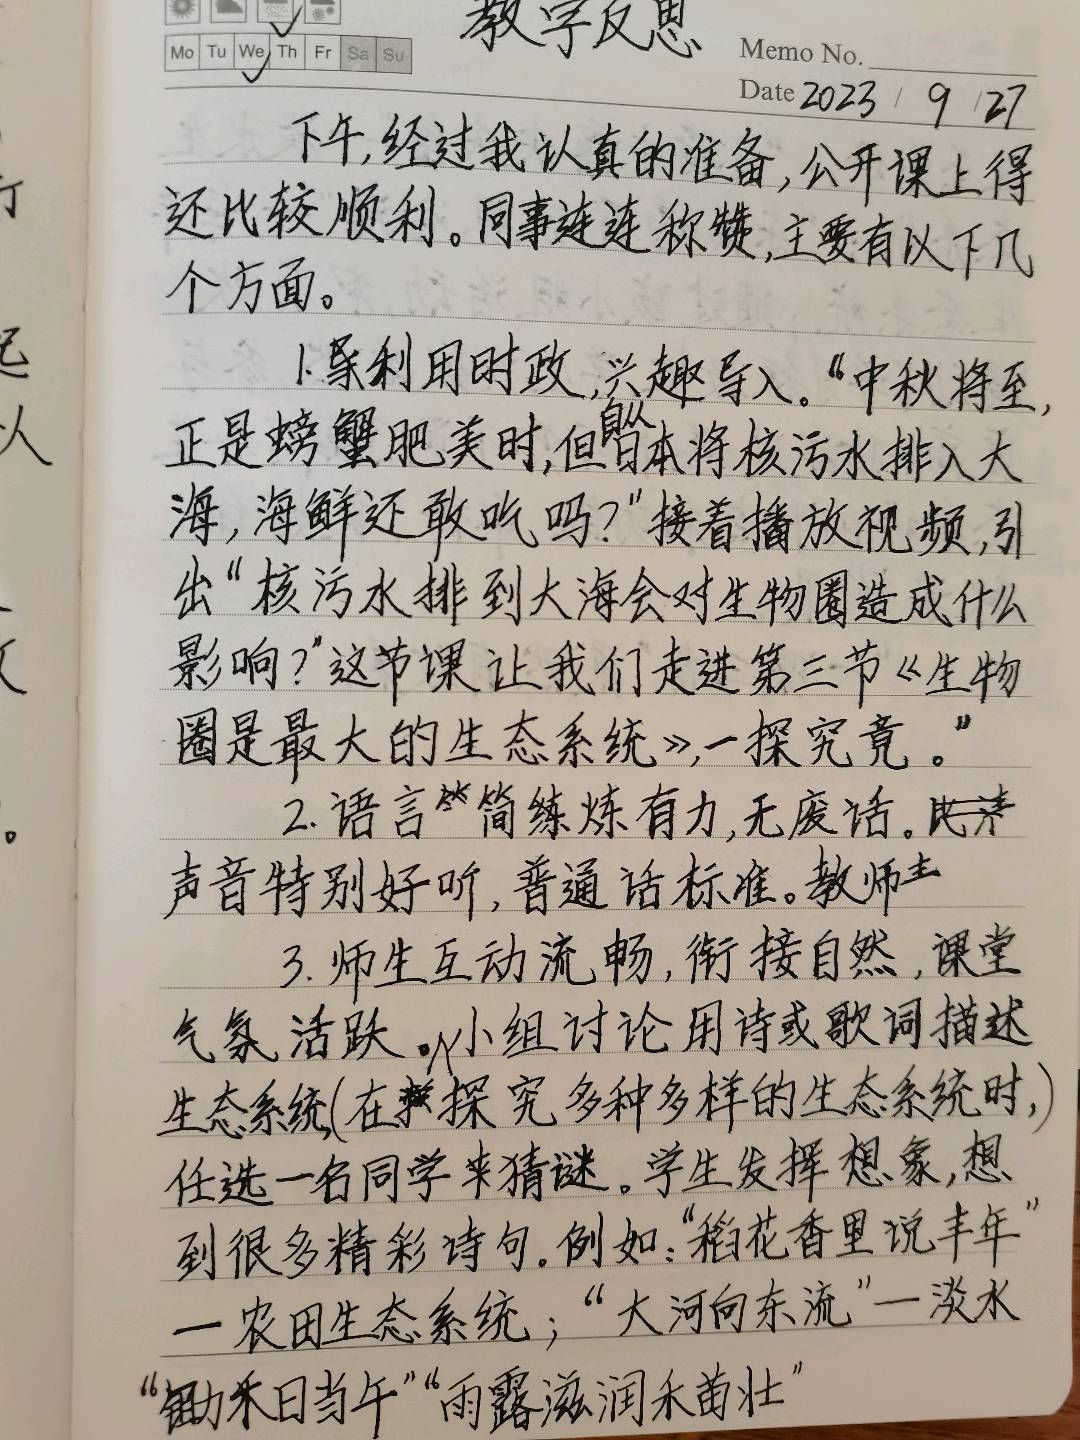 教学反思
Mo Tu We Th Fr Sa Su
Memo No.
Date 2023 / 9 / 27
下午,经过我认真的准备,公开课上得
还比较顺利。同事连连称赞,主要有以下几
个方面。
1.利用时政,兴趣导入。“中秋将至,
正是螃蟹肥美时,但自从日本将核污水排入大
海,海鲜还敢吃吗?”接着播放视频,引
出“核污水排到大海会对生物圈造成什么
影响?”这节课让我们走进第三节《生物
圈是最大的生态系统》,一探究竟。”
2.语言简练炼有力,无废话。
声音特别好听,普通话标准。教师
3.师生互动流畅,衔接自然,课堂
气氛活跃。小组讨论用诗或歌词描述
生态系统,(在探究多种多样的生态系统时,)
任选一名同学来猜谜。学生发挥想象,想
到很多精彩诗句。例如:“稻花香里说丰年”
—农田生态系统;“大河向东流”—淡水
“锄禾日当午”“雨露滋润禾苗壮”